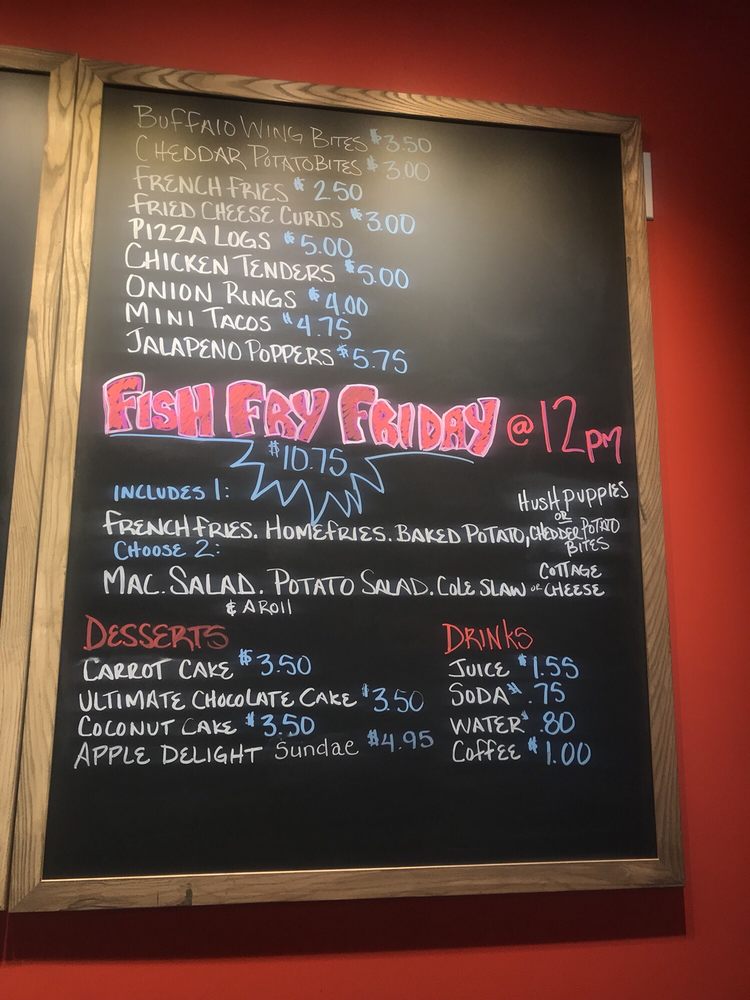 BUFFALO WING BITES $3.50
CHEDDAR POTATO BITES $3.00
FRENCH FRIES $2.50
FRIED CHEESE CURDS $3.00
PIZZA LOGS $5.00
CHICKEN TENDERS $5.00
ONION RINGS $4.00
MINI TACOS $4.75
JALAPENO POPPERS $5.75
FISH FRY FRIDAY @ 12 PM
$10.75
INCLUDES 1:
FRENCH FRIES. HOMEFRIES. BAKED POTATO, HUSH PUPPIES
OR
CHEDDER POTATO
BITES
CHOOSE 2:
MAC. SALAD. POTATO SALAD. COLE SLAW OR COTTAGE
CHEESE
& A ROll
DESSERTS
CARROT CAKE $3.50
ULTIMATE CHOCOLATE CAKE $3.50
COCONUT CAKE $3.50
APPLE DELIGHT Sundae $4.95
DRINKS
JUICE $1.55
SODA $.75
WATER $.80
COFFEE $1.00